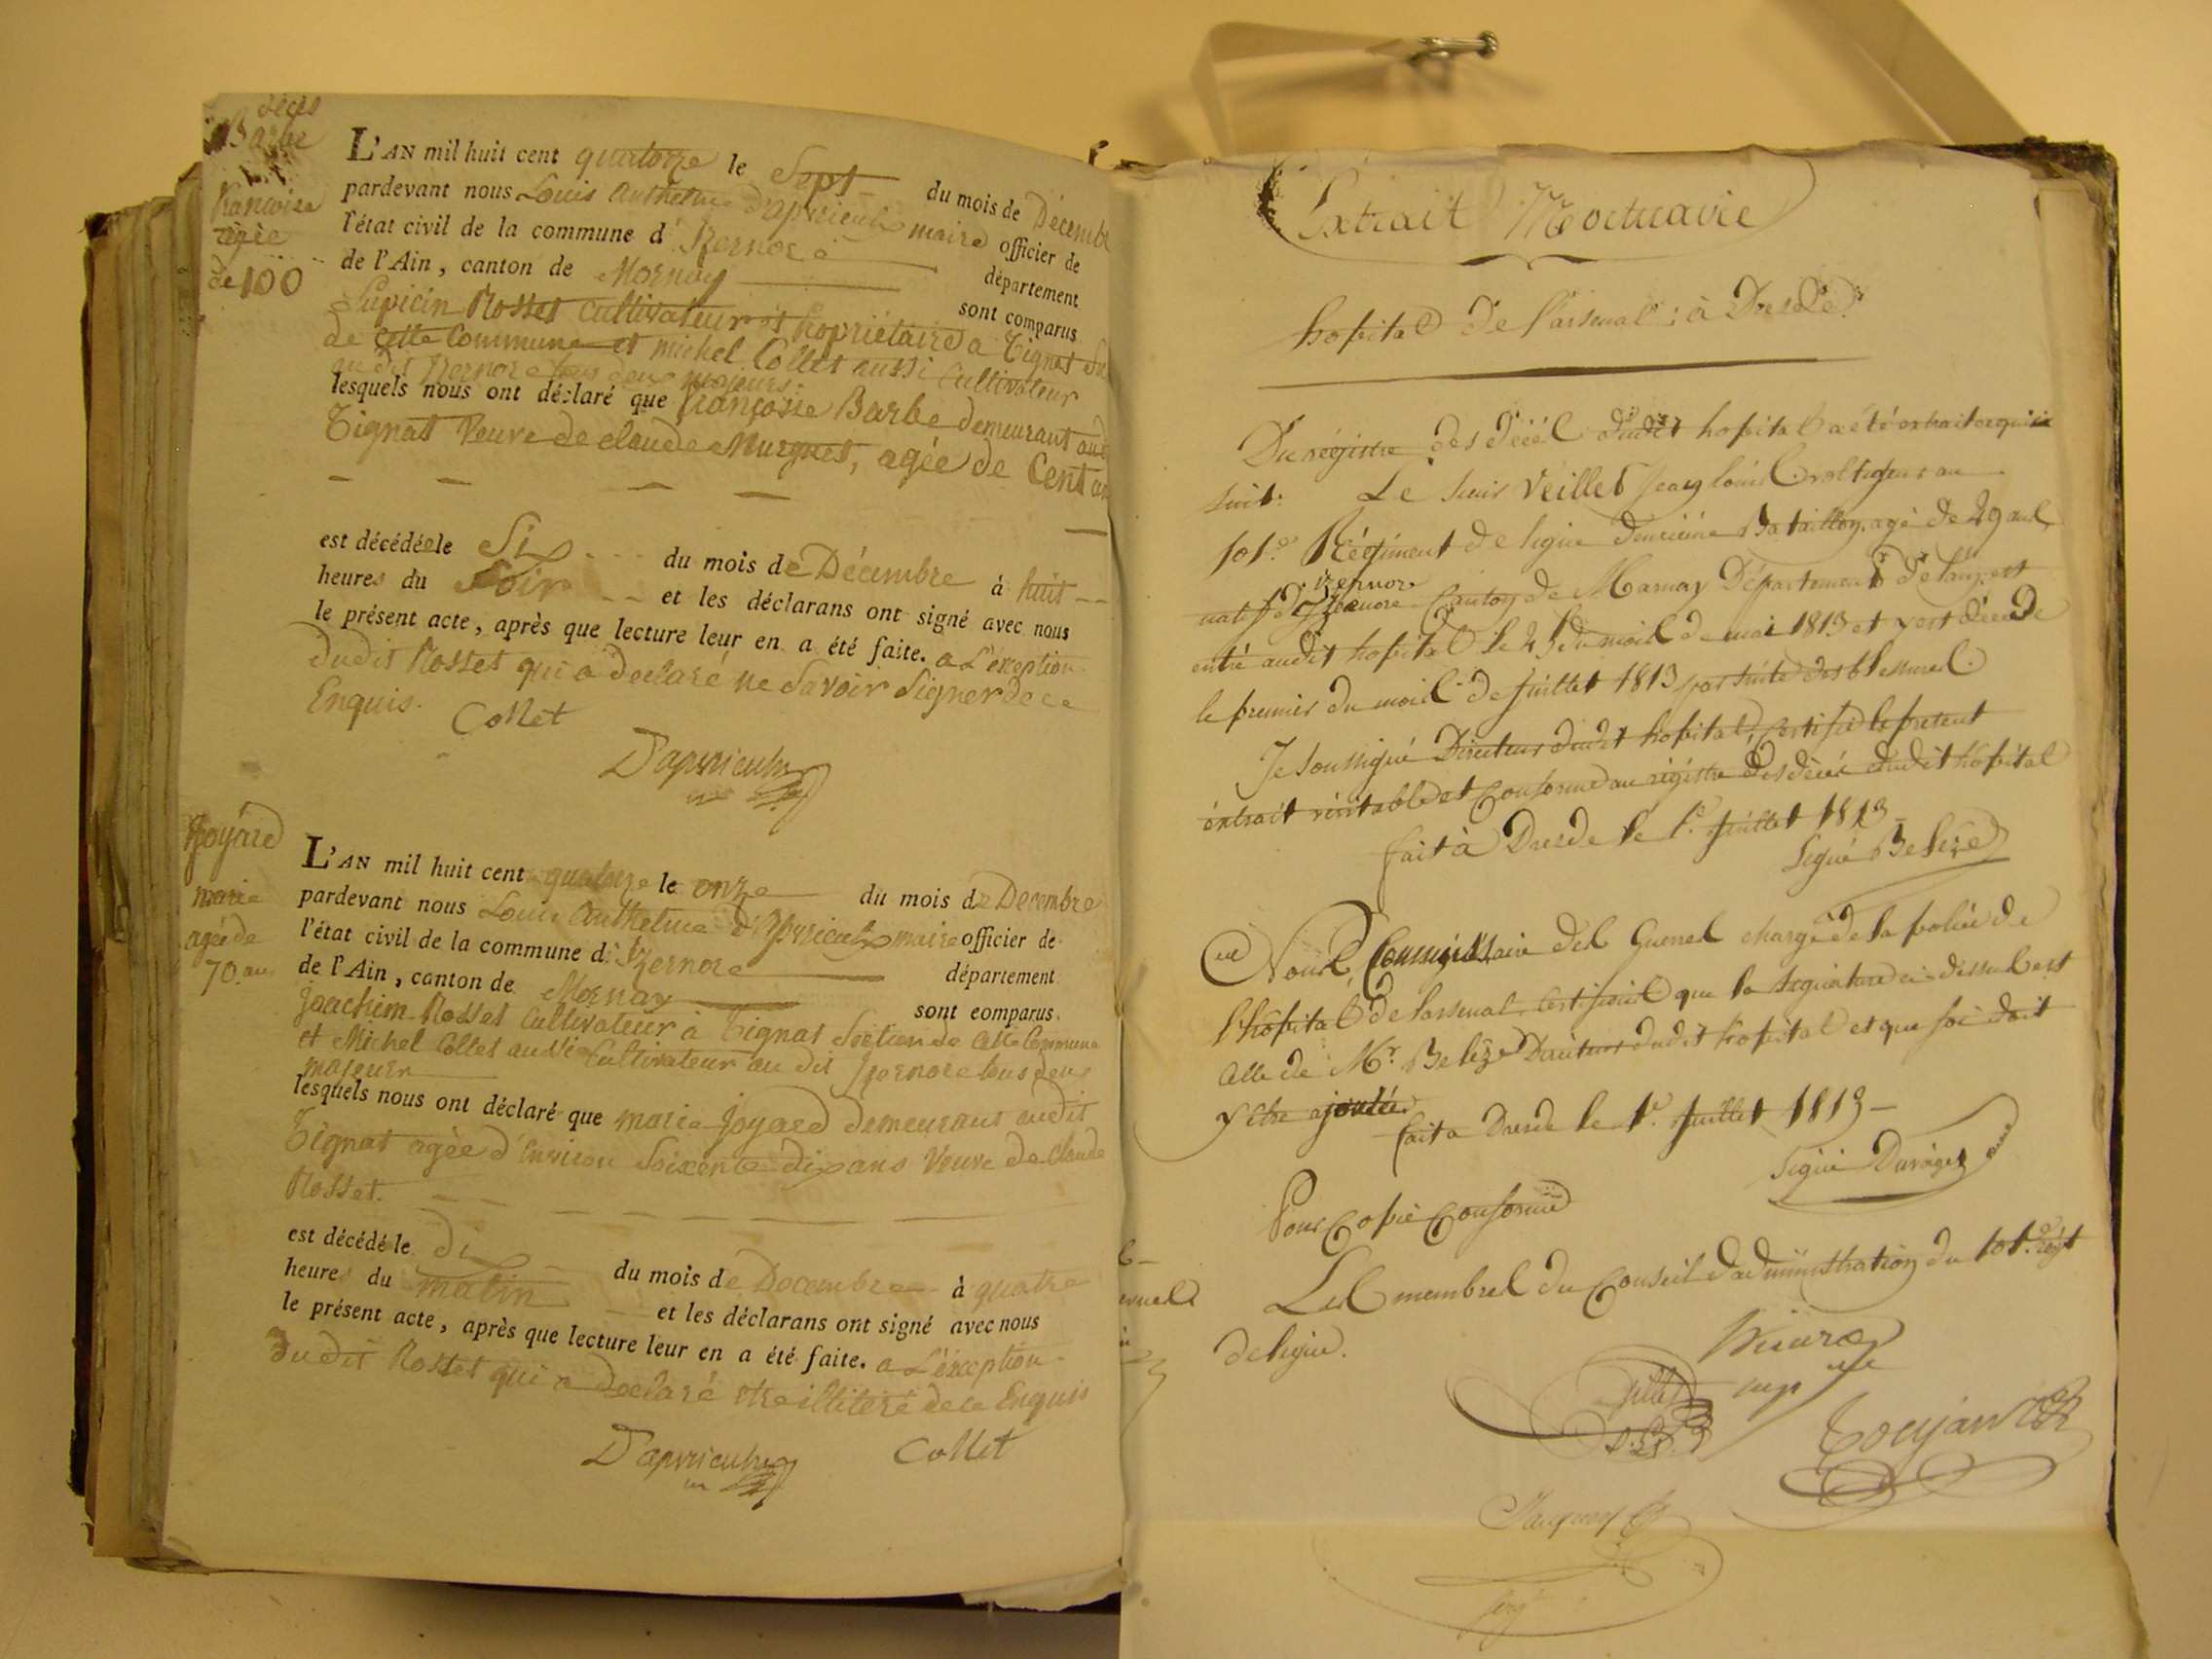 décès
Barbe
françoise
agée
de 100
L'AN mil huit cent quatorze le Sept du mois de Décembre
pardevant nous Louis Anthelme D'apvrieulx maire officier de
l'état civil de la commune d'Izernore département
de l'Ain, canton de Mornay sont comparus
Lupicin Rosset Cultivateur et propriétaire a Tignat
de cette Commune et michel Collet aussi Cultivateur
au dit Izernore tous deux majeurs.
lesquels nous ont déclaré que françoise Barbe demeurant audit
Tignat Veuve de claude Murgnet, agée de Cent ans
est décédée le Six du mois de Décembre à huit
heures du Soir et les déclarans ont signé avec nous
le présent acte, après que lecture leur en a été faite. a L'exception
dudit Rosset qui a declaré ne Savoir Signer de ce
Enquis.
Collet
D'apvrieulx
Joyard
marie
agée de
70 ans
L'AN mil huit cent quatorze le onze du mois de Decembre
pardevant nous Louis Anthelme D'apvrieulx maire officier de
l'état civil de la commune d'Izernore département
de l'Ain, canton de Mornay sont comparus.
Joachim Rosset Cultivateur à Tignat Section de cette Commune
et Michel Collet aussi Cultivateur au dit Izernore tous deux
majeurs
lesquels nous ont déclaré que marie Joyard demeurant audit
Tignat agée d'Environ Soixente dix ans Veuve de Claude
Rosset.
est décédé le dix du mois de Decembre à quatre
heures du matin et les déclarans ont signé avec nous
le présent acte, après que lecture leur en a été faite. a L'exception
dudit Rosset qui a declaré etre illiteré de ce Enquis
D'apvrieulx Collet
Extrait Mortuaire
hopital de l'arsenal : à Dresde
Du régistre des décés dudit hopital a été extrait ce qui
suit. Le sieur Veillet Jean louis voltigeur au
101.e Régiment de ligne deuxième Bataillon, agé de 29 ans
izernore
natif d'Izernore Canton de Marnay Département de l'ain, est
entré audit hopital le 23 du mois de mai 1813 et y est décédé
le premier du mois de Juillet 1813 par suite des blessures.
Je soussigné Directeur dudit hopital, certifie le présent
extrait véritable et Conforme au régistre des décés dudit hôpital
fait à Dresde le 1.er Juillet 1813
Signé Belize
Nous, Commissaire des Guerres chargé de la police de
l'hôpital de l'arsenal, Certifions que la signature ci-dessus est
celle de Mr. Belize Directeur dudit hopital et que foi doit
y etre ajoutée.
fait a Dresde le 1.er Juillet 1813
Signé
Pour Copie Conforme
Les membres du Conseil d'administration du 101.e régt
de ligne.